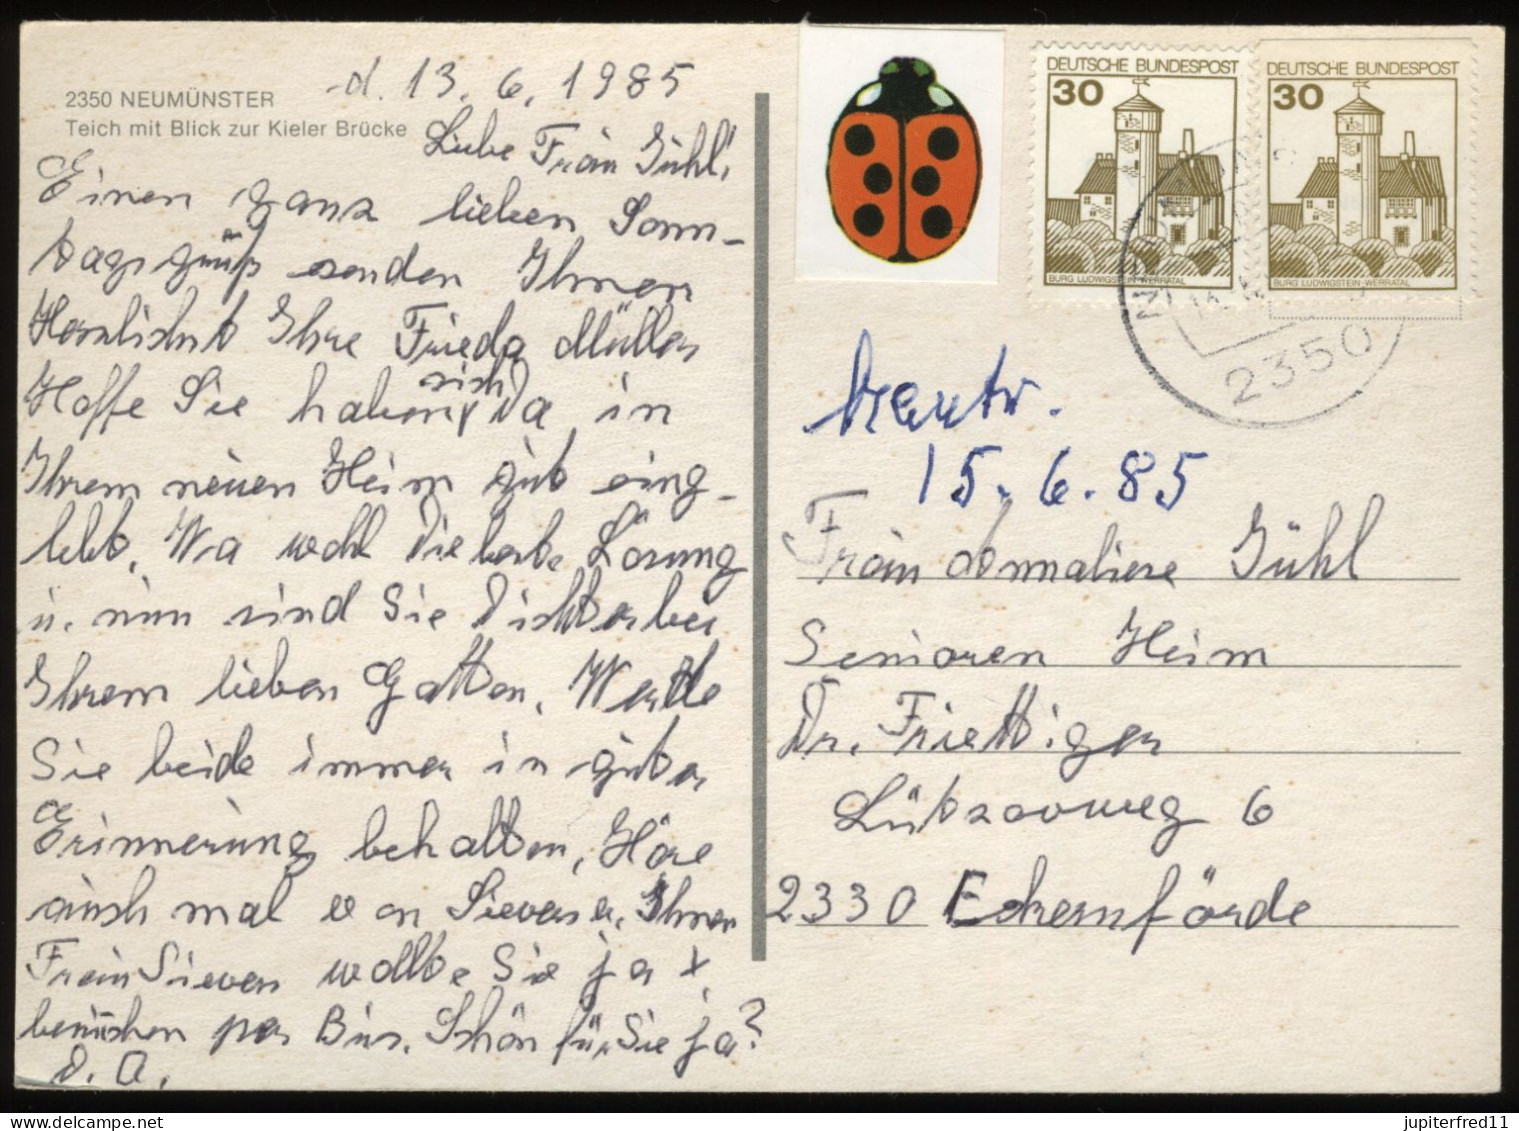 2350 NEUMÜNSTER
Teich mit Blick zur Kieler Brücke
d. 13. 6. 1985
Liebe Frau Gühl,
Einen ganz lieben Sonn-
tagsgruß senden Ihnen
Herzlichst Ihre Frieda Müller
Hoffe Sie haben sich da in
Ihrem neuen Heim gut eing-
lebt, Wa wohl die beste Lösung
u. nun sind Sie dichter bei
Ihrem lieben Gatten, Werde
Sie beide immer in guter
Erinnerung behalten, Höre
auch mal von Sievers u. Ihnen
Frau Sievers wollte Sie ja x
besuchen per Bus. Schön für Sie ja?
d. O.
DEUTSCHE BUNDESPOST
30
BURG LUDWIGSTEIN-WERRATAL
DEUTSCHE BUNDESPOST
30
BURG LUDWIGSTEIN-WERRATAL
2350
beantw.
15. 6. 85
Frau Annaliese Gühl
Senioren Heim
Dr.
Lützowweg 6
2330 Eckernförde
jupiterfred11